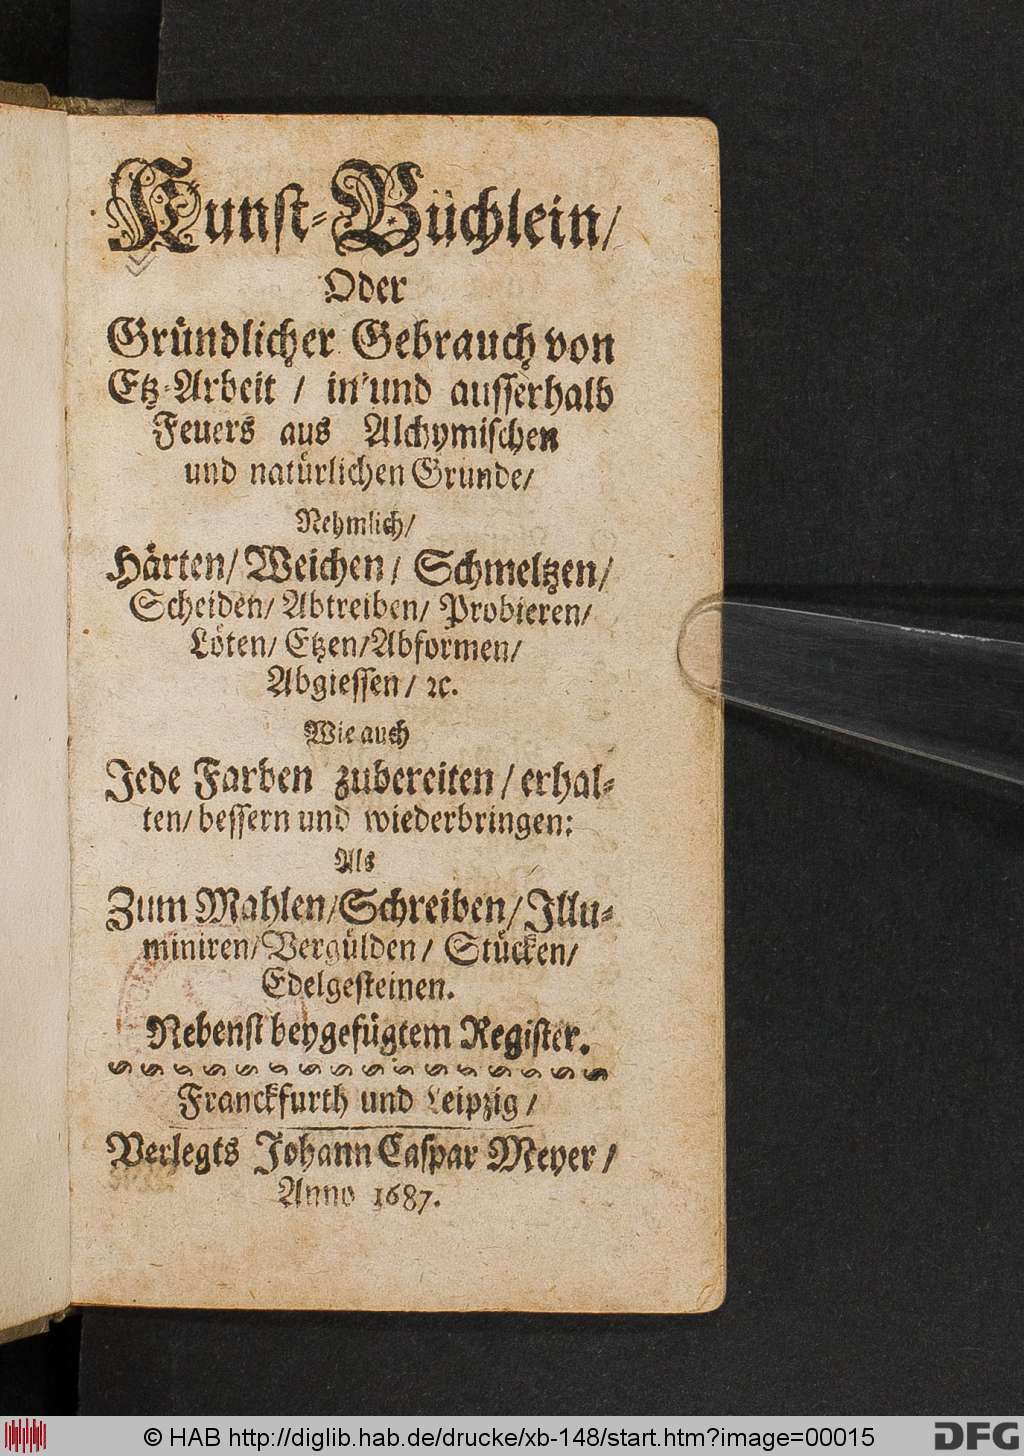 Kunst-Büchlein/
Oder
Gründlicher Gebrauch von
Etz-Arbeit / in und ausserhalb
Feuers aus Alchymischen
und natürlichen Grunde/
Nehmlich/
Härten/ Weichen/ Schmeltzen/
Scheiden/ Abtreiben/ Probieren/
Löten/ Etzen/Abformen/
Abgiessen/ ꝛc.
Wie auch
Jede Farben zubereiten/ erhal-
ten/ bessern und wiederbringen:
Als
Zum Mahlen/Schreiben/Illu-
miniren/Vergülden/ Stücken/
Edelgesteinen.
Nebenst beygefügtem Register.
Franckfurth und Leipzig/
Verlegts Johann Caspar Meyer/
Anno 1687.
© HAB http://diglib.hab.de/drucke/xb-148/start.htm?image=00015
DFG